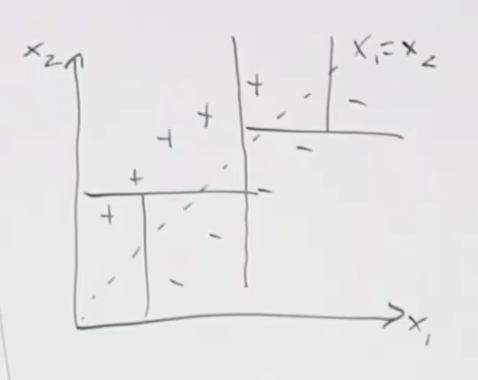 x₂
x₁=x₂
+
+ -
+
+
- -
+
-
-
x₁